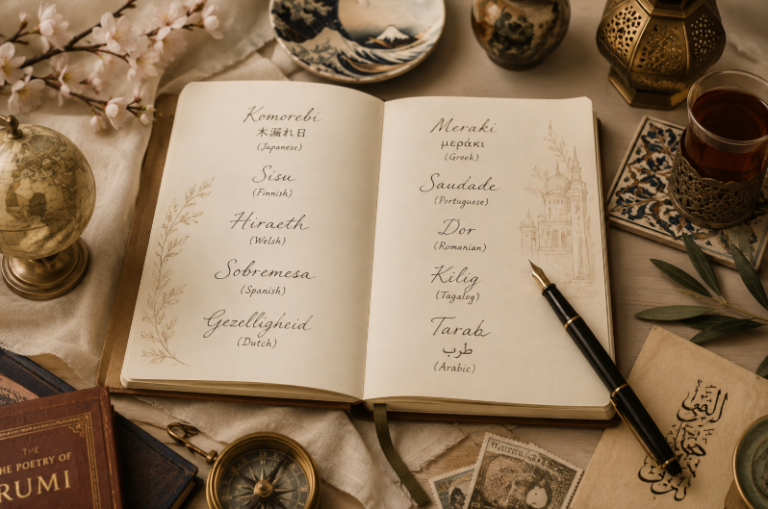 Komorebi
木漏れ日
(Japanese)
Sisu
(Finnish)
Hiraeth
(Welsh)
Sobremesa
(Spanish)
Gezelligheid
(Dutch)
Meraki
μεράκι
(Greek)
Saudade
(Portuguese)
Dor
(Romanian)
Kilig
(Tagalog)
Tarab
طرب
(Arabic)
THE
HE POETRY OF
RUMI